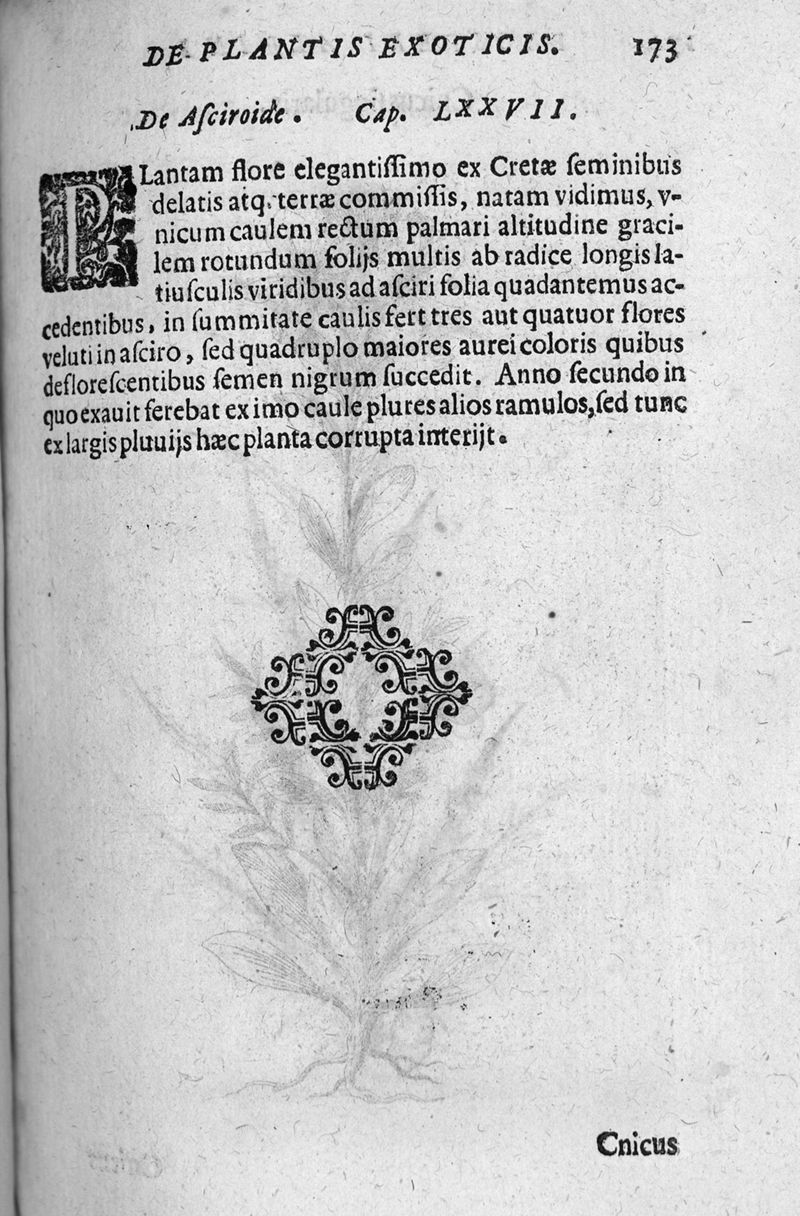 DE PLANTIS EXOTICIS. 173
De Aſciroide. Cap. LXXVII.
PLantam flore elegantiſſimo ex Cretæ ſeminibus
delatis atq. terræ commiſſis, natam vidimus, v-
nicum caulem rectum palmari altitudine graci-
lem rotundum folijs multis ab radice longis la-
tiuſculis viridibus ad aſciri folia quadantemus ac-
cedentibus, in ſummitate caulis fert tres aut quatuor flores
veluti in aſciro, ſed quadruplo maiores aurei coloris quibus
defloreſcentibus ſemen nigrum ſuccedit. Anno ſecundo in
quo exauit ferebat ex imo caule plures alios ramulos, ſed tunc
ex largis pluuijs hæc planta corrupta interijt.
Cnicus